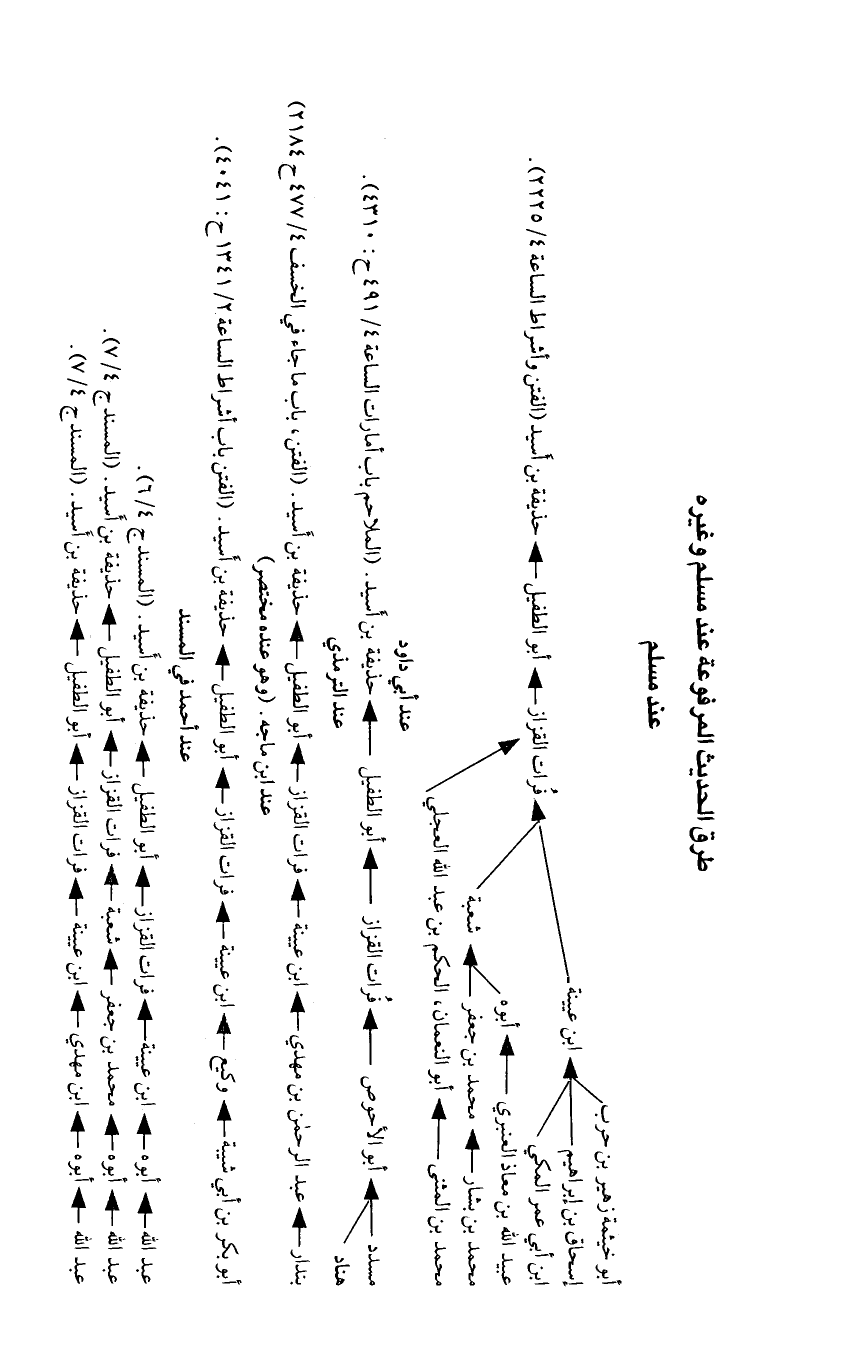 طرق الحديث المرفوعة عند مسلم وغيره
عند مسلم
أبو خيثمة زهير بن حرب
إسحاق بن إبراهيم
ابن أبي عمر المكي
ابن عيينة
عبيد الله بن معاذ العنبري
أبوه
محمد بن بشار
محمد بن جعفر
شعبة
محمد بن المثنى
أبو النعمان، الحكم بن عبد الله العجلي
فُرات القزاز
أبو الطفيل
حذيفة بن أسيد (الفتن وأشراط الساعة ٤/ ٢٢٢٥).
عند أبي داود
مسدد
هناد
أبو الأحوص
فُرات القزاز
أبو الطفيل
حذيفة بن أَسيد. (الملاحم باب أمارات الساعة ٤/ ٤٩١ ح: ٤٣١٠).
عند الترمذي
بندار
عبد الرحمٰن بن مهدي
ابن عيينة
فرات القزاز
أبو الطفيل
حذيفة بن أسيد. (الفتن، باب ما جاء في الخسف ٤/ ٤٧٧ ح ٢١٨٤)
عند ابن ماجه. (وهو عنده مختصر)
أبو بكر بن أبي شيبة
وكيع
ابن عيينة
فرات القزاز
أبو الطفيل
حذيفة بن أسيد. (الفتن باب أشراط الساعة ٢/ ١٣٤١ ح: ٤٠٤١).
عند أحمد في المسند
عبد الله
أبوه
ابن عيينة
فرات القزاز
أبو الطفيل
حذيفة بن أسيد. (المسند ج ٤/ ٦).
عبد الله
أبوه
محمد بن جعفر
شعبة
فرات القزاز
أبو الطفيل
حذيفة بن أَسيد. (المسند ج ٤/ ٧).
عبد الله
أبوه
ابن مهدي
ابن عيينة
فرات القزاز
أبو الطفيل
حذيفة بن أَسيد. (المسند ج ٤/ ٧).